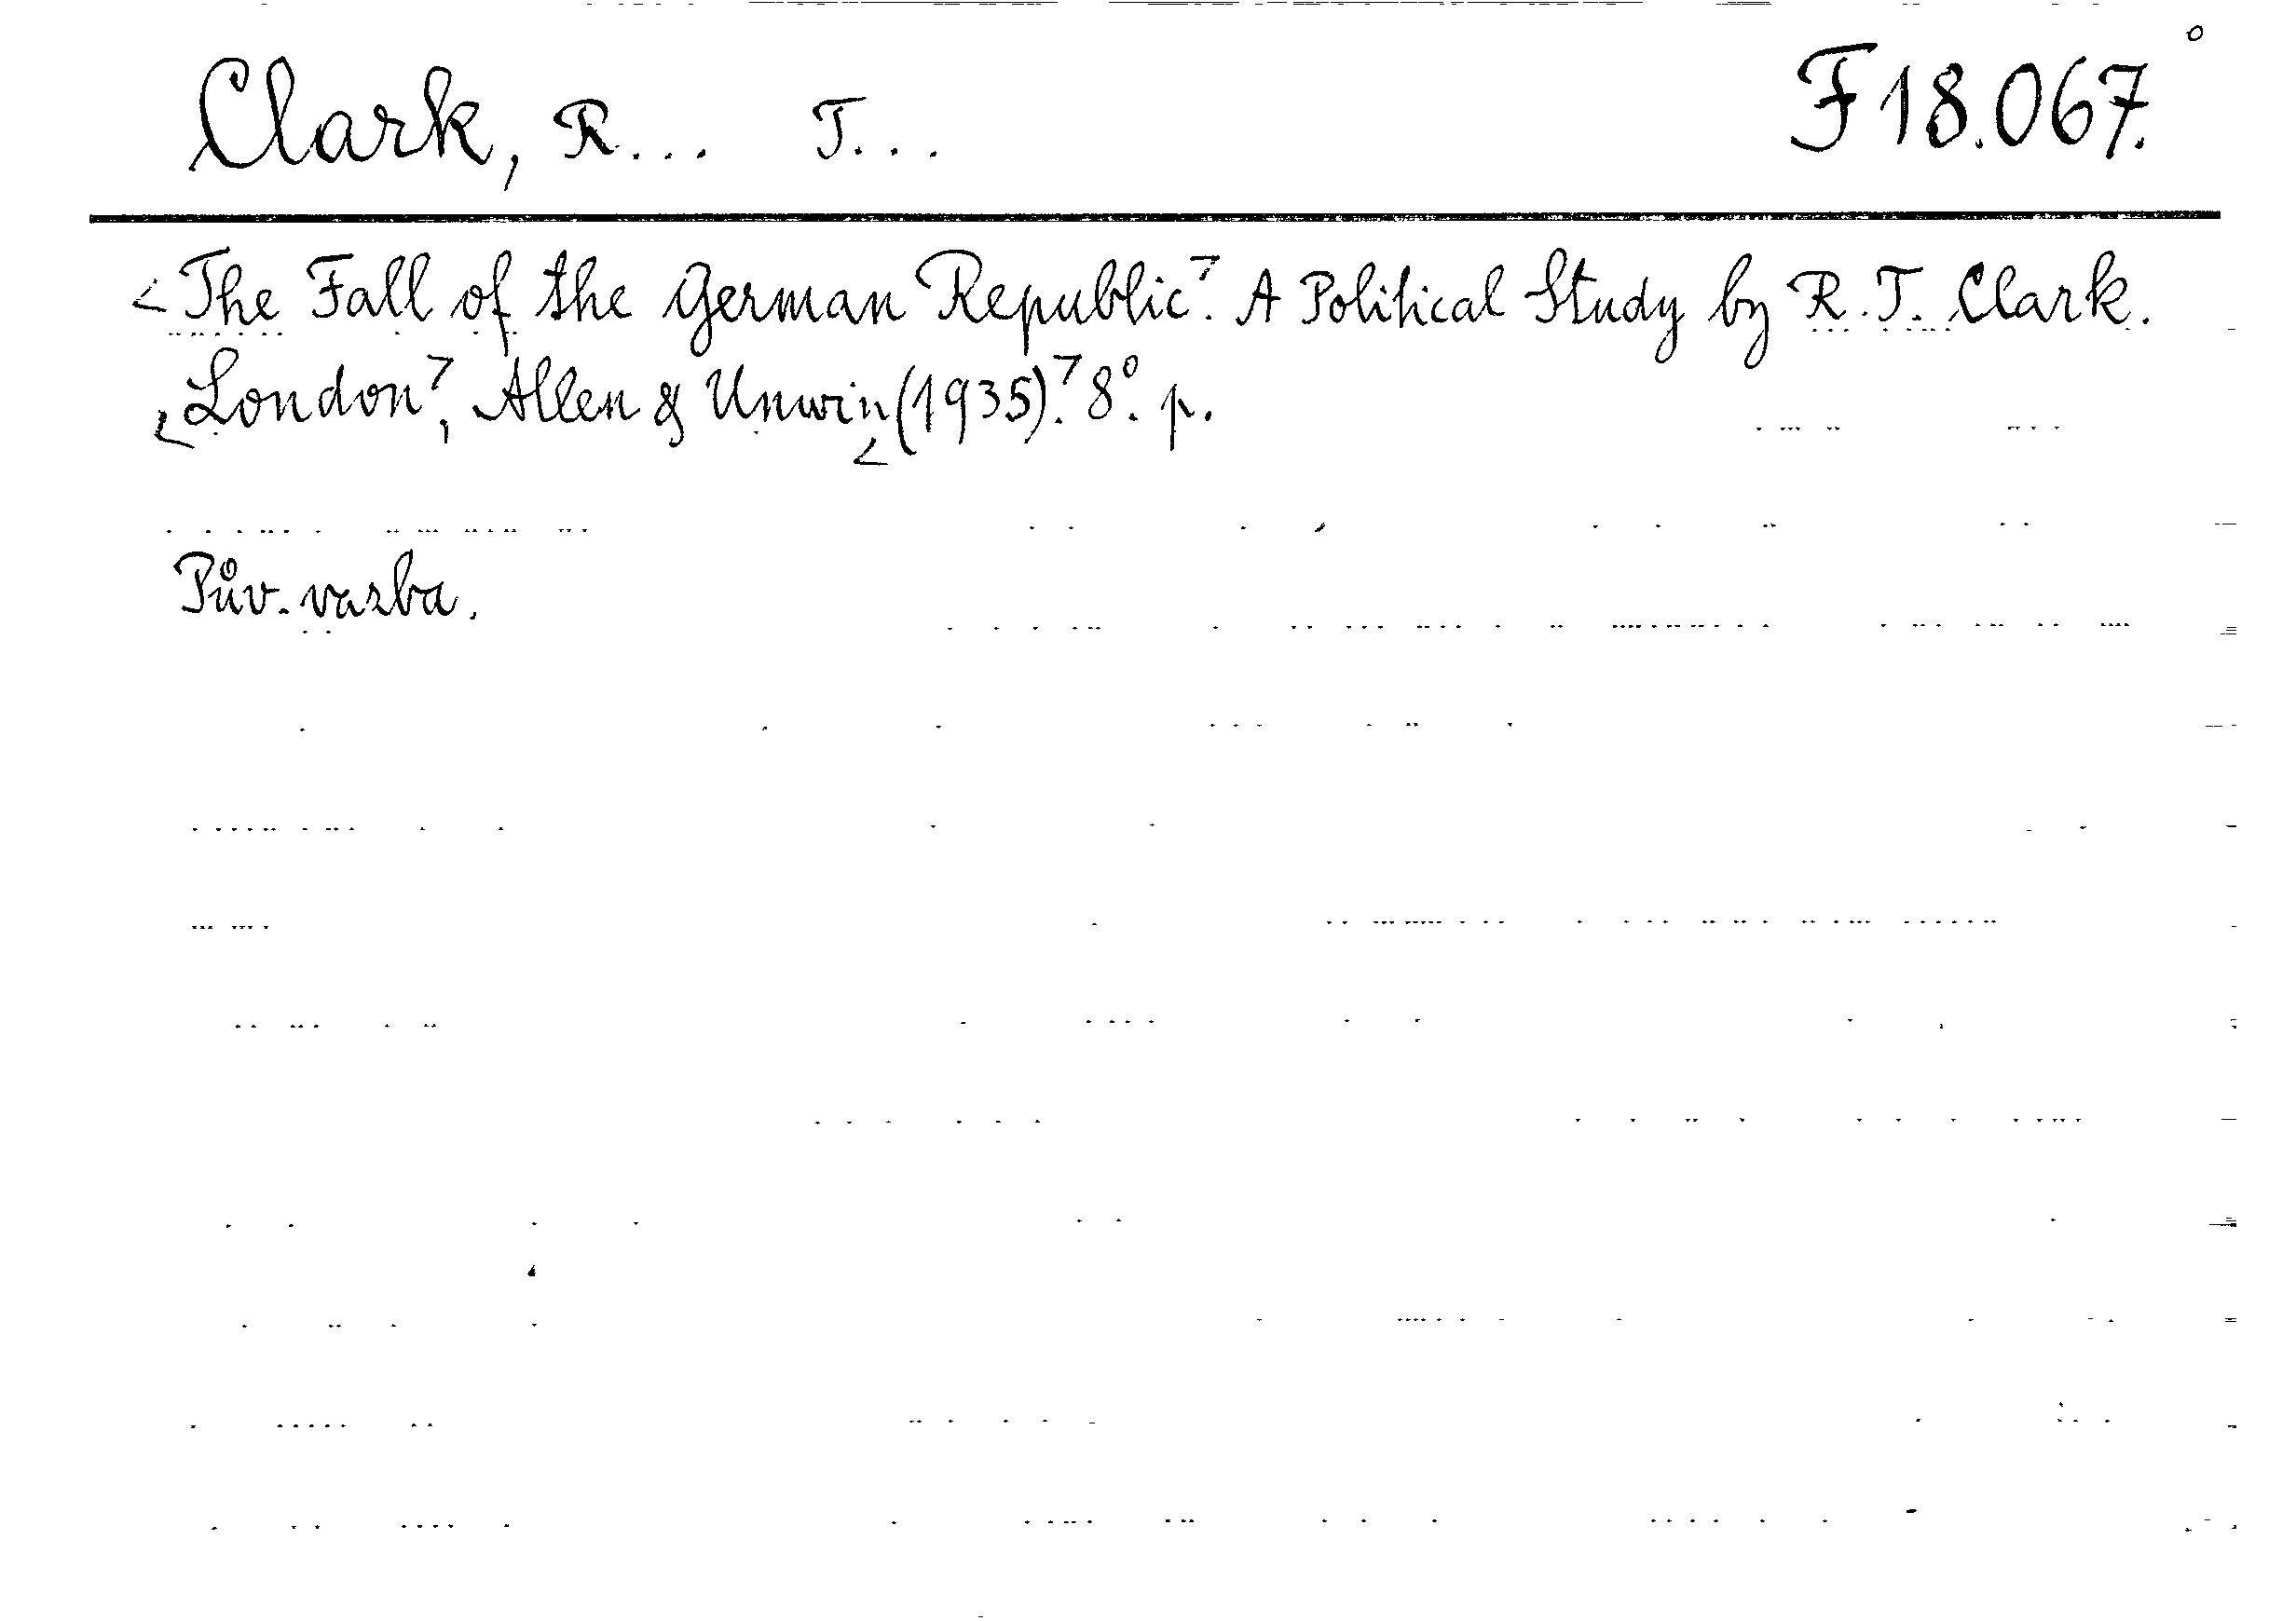 Clark, R... T... F 18.067.
<The Fall of the German Republic>. A Political Study by R. T. Clark.
<London>, Allen & Unwin <(1935).> 8°. p.
Pův. vazba.